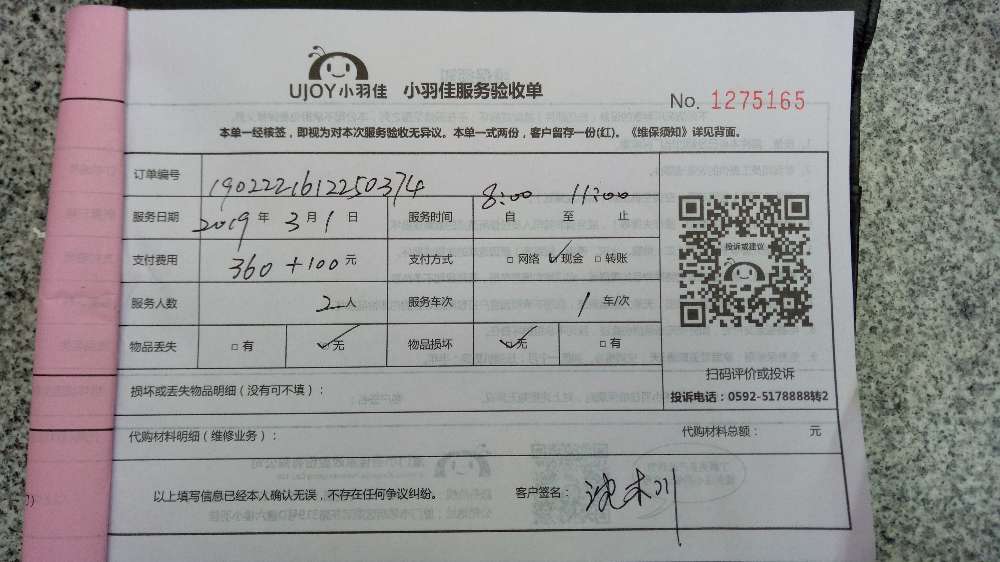 UJOY小羽佳 小羽佳服务验收单
No. 1275165
本单一经核签，即视为对本次服务验收无异议。本单一式两份，客户留存一份(红)。《维保须知》详见背面。
订单编号 1902221612250374
8:00 11:00
服务日期 2019 年 3 月 1 日 服务时间 自 至 止
投诉或建议
支付费用 360 +100 元 支付方式 □ 网络 ☑ 现金 □ 转账
服务人数 2 人 服务车次 1 车/次
物品丢失 □ 有 ☑ 无 物品损坏 ☑ 无 □ 有
扫码评价或投诉
损坏或丢失物品明细（没有可不填）：
投诉电话：0592-5178888转2
代购材料明细（维修业务）： 代购材料总额： 元
以上填写信息已经本人确认无误，不存在任何争议纠纷。 客户签名：